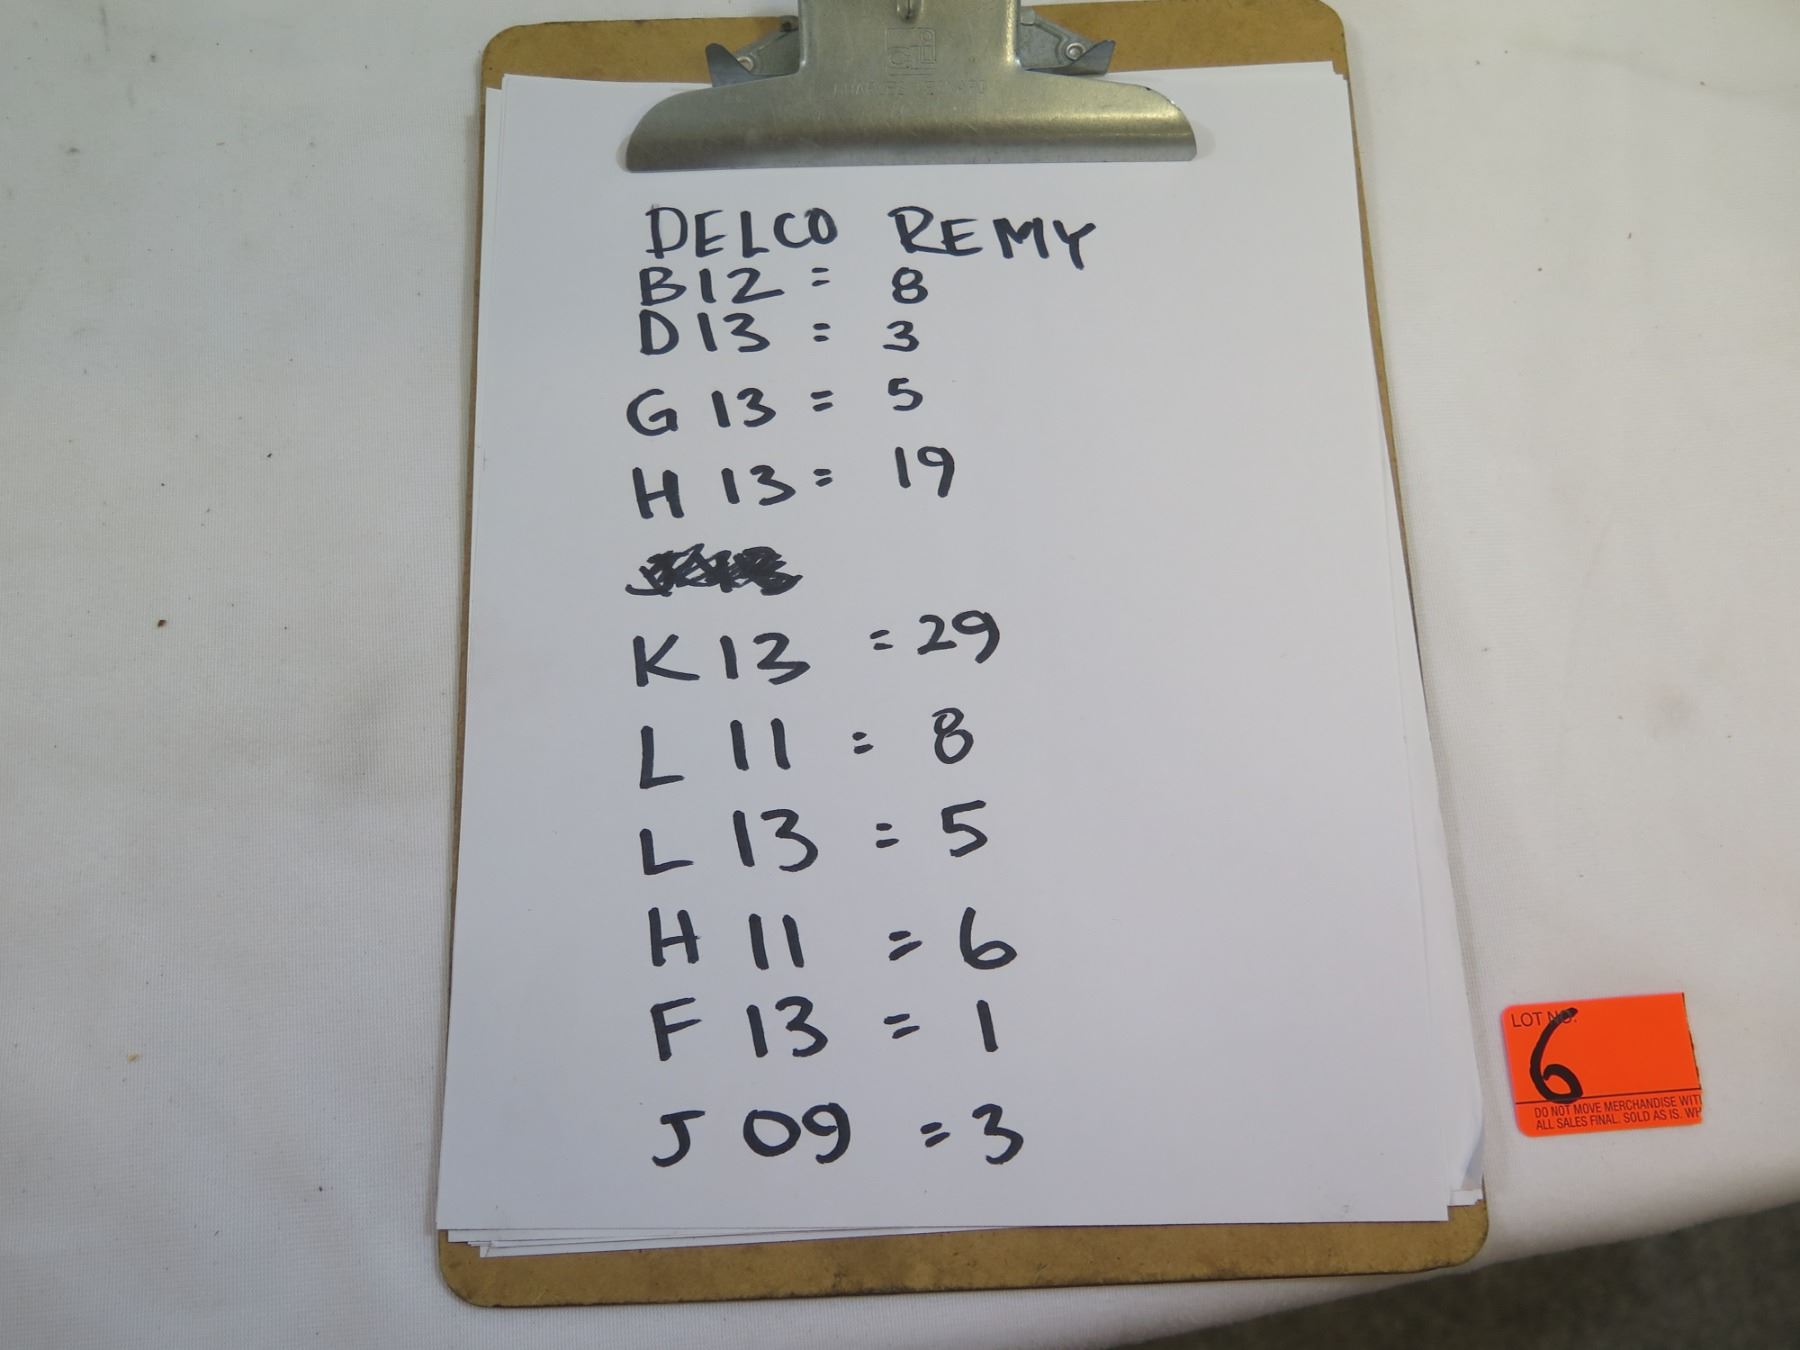 DELCO REMY
B12 = 8
D13 = 3
G 13 = 5
H 13 = 19
K 13 = 29
L 11 = 8
L 13 = 5
H 11 = 6
F 13 = 1
J 09 = 3
LOT NO.
6
DO NOT MOVE MERCHANDISE WIT
ALL SALES FINAL. SOLD AS IS. WH